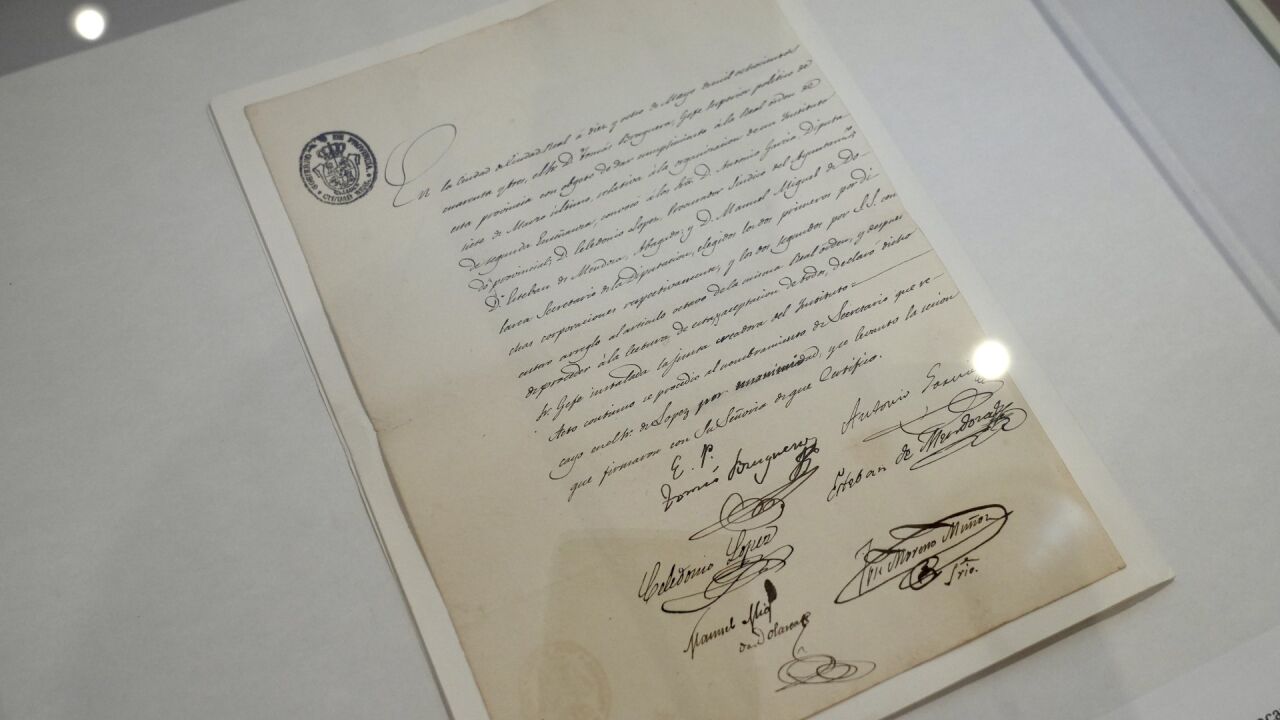 GOBIERNO DE PROVINCIA
CIUDAD REAL
En la Ciudad de Ciudad Real á diez y ocho de Mayo de mil ochocientos
cuarenta y tres, el Sr. D. Tomás Bruguera, Gefe Superior politico de
esta provincia con objeto de dar cumplimiento á la Real orden de
siete de Marzo ultimo, relativa á la organizacion de un Instituto
de segunda Enseñanza, convocó á los Sres. D. Antonio Garcia Diputa
do provincial; D. Celedonio Lopez, Procurador Sindico del Ayuntamto
D. Esteban de Mendoza, Abogado; y D. Manuel Miguel de Do
larea Secretario de la Diputacion, elegidos los dos primeros por di
chas corporaciones respectivamente, y los dos segundos por S.S. con
entero arreglo al articulo octavo de la misma Real orden, y despues
de proceder á la lectura de esta, aceptacion de todos, declaró dicho
Sr. Gefe instalada la junta creadora del Instituto
Acto continuo se procedio al nombramiento de Secretario que re
cayo en el Sr. de Lopez por unanimidad, que levanto la sesion
que firmaron con Su Señoria de que Certifico.
E. P.
Tomás Bruguera
Antonio Garcia
Esteban de Mendoza
Celedonio Lopez
José Moreno Muñoz
Srio.
Manuel
de Dolarea